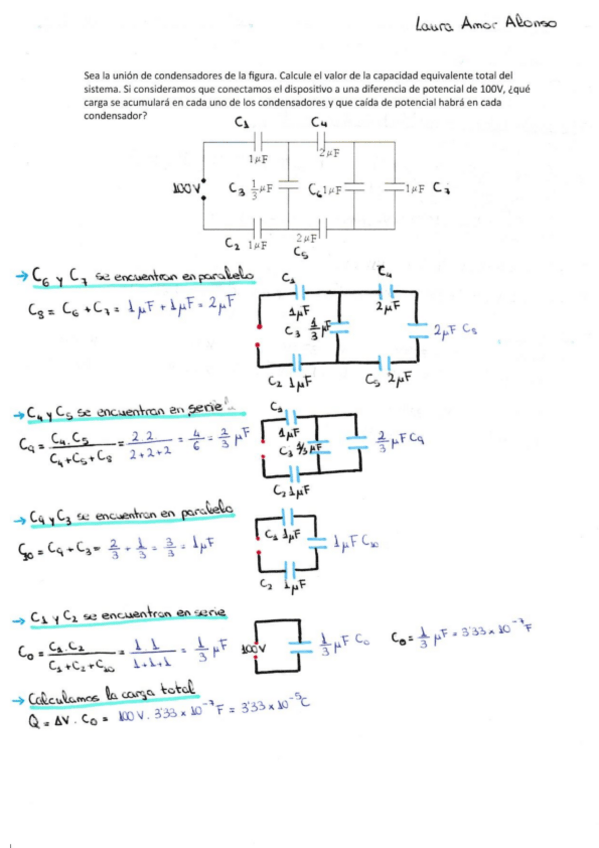 Laura Amor Alonso
Sea la unión de condensadores de la figura. Calcule el valor de la capacidad equivalente total del
sistema. Si consideramos que conectamos el dispositivo a una diferencia de potencial de 100V, ¿qué
carga se acumulará en cada uno de los condensadores y que caída de potencial habrá en cada
condensador?
C1 C4
1μF 2μF
100V C3 1/3 μF C6 1μF 1μF C7
C2 1μF 2μF
C5
→ C6 y C7 se encuentran en paralelo
C8 = C6 + C7 = 1μF + 1μF = 2μF
C1 C4
1μF 2μF
C3 1/3 μF 2μF C8
C2 1μF C5 2μF
→ C4 y C5 se encuentran en serie
C9 = C4 · C5 / C4 + C5 + C8 = 2 · 2 / 2 + 2 + 2 = 4/6 = 2/3 μF
1μF
C3 1/3 μF 2/3 μF C9
C2 1μF
→ C9 y C3 se encuentran en paralelo
C10 = C9 + C3 = 2/3 + 1/3 = 3/3 = 1μF
C1 1μF 1μF C10
C2 1μF
→ C1 y C2 se encuentran en serie
C0 = C1 · C2 / C1 + C2 + C10 = 1 · 1 / 1 + 1 + 1 = 1/3 μF
100V 1/3 μF C0 C0 = 1/3 μF = 3'33 x 10^-7 F
→ Calculamos la carga total
Q = ΔV · C0 = 100 V · 3'33 x 10^-7 F = 3'33 x 10^-5 C